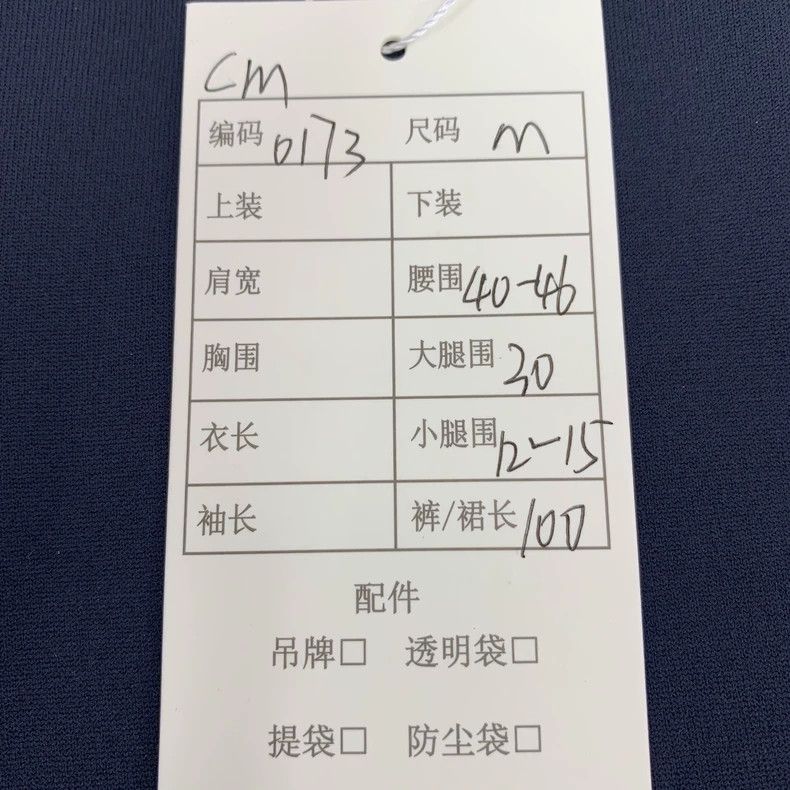 cm
编码 0173 尺码 m
上装 下装
肩宽 腰围 40-46
胸围 大腿围 30
衣长 小腿围 12-15
袖长 裤/裙长 100
配件
吊牌□ 透明袋□
提袋□ 防尘袋□